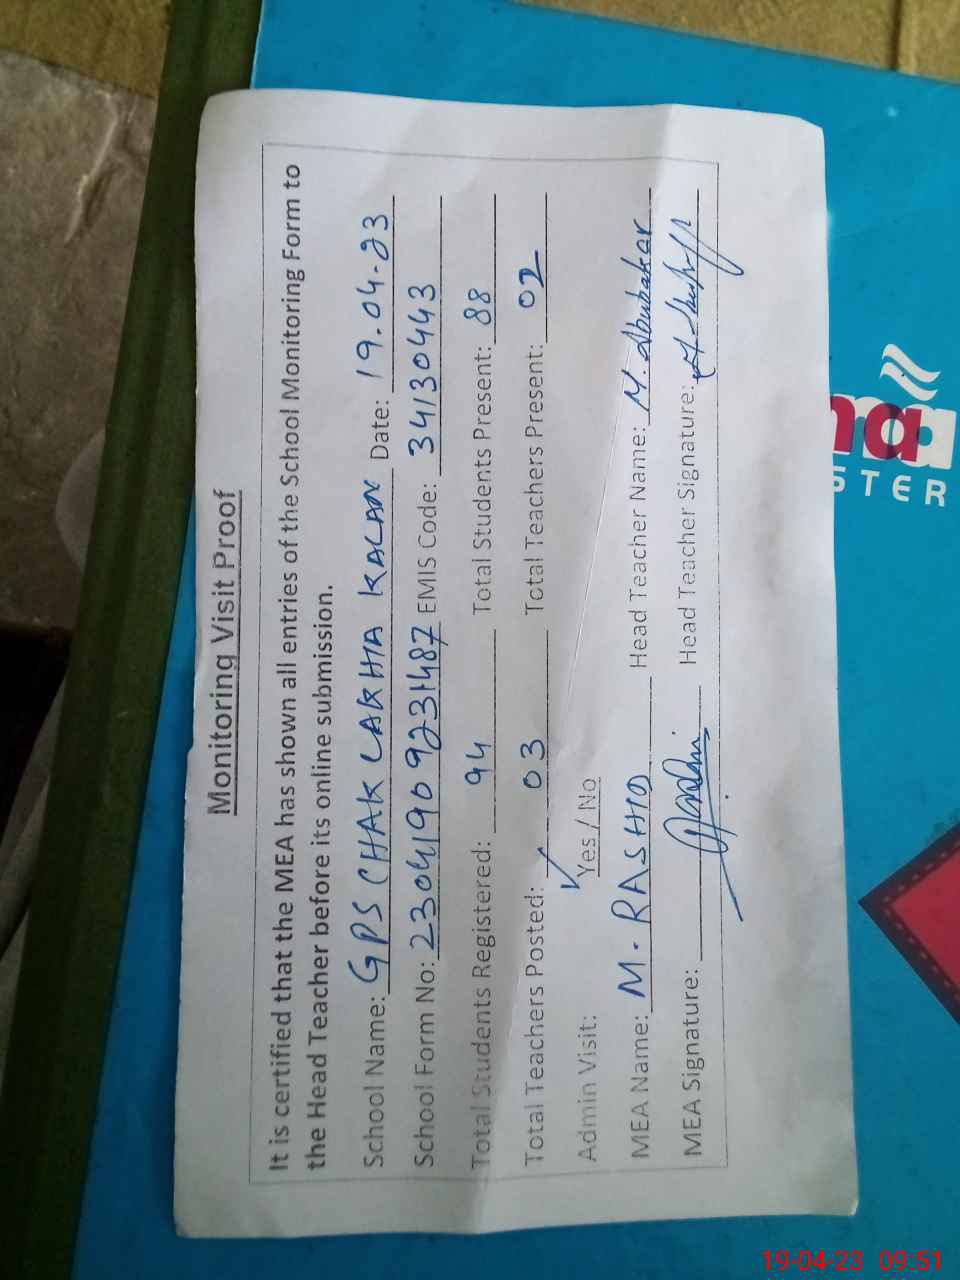 Monitoring Visit Proof
It is certified that the MEA has shown all entries of the School Monitoring Form to
the Head Teacher before its online submission.
School Name: GPS CHAK LAKHIA KALAN Date: 19.04.23
School Form No: 23041909231487 EMIS Code: 34130443
Total Students Registered: 94 Total Students Present: 88
Total Teachers Posted: 03 Total Teachers Present: 02
Admin Visit: Yes / No
MEA Name: M. RASHID Head Teacher Name: M. Abubakar
MEA Signature: Head Teacher Signature:
STER
19-04-23 09:51